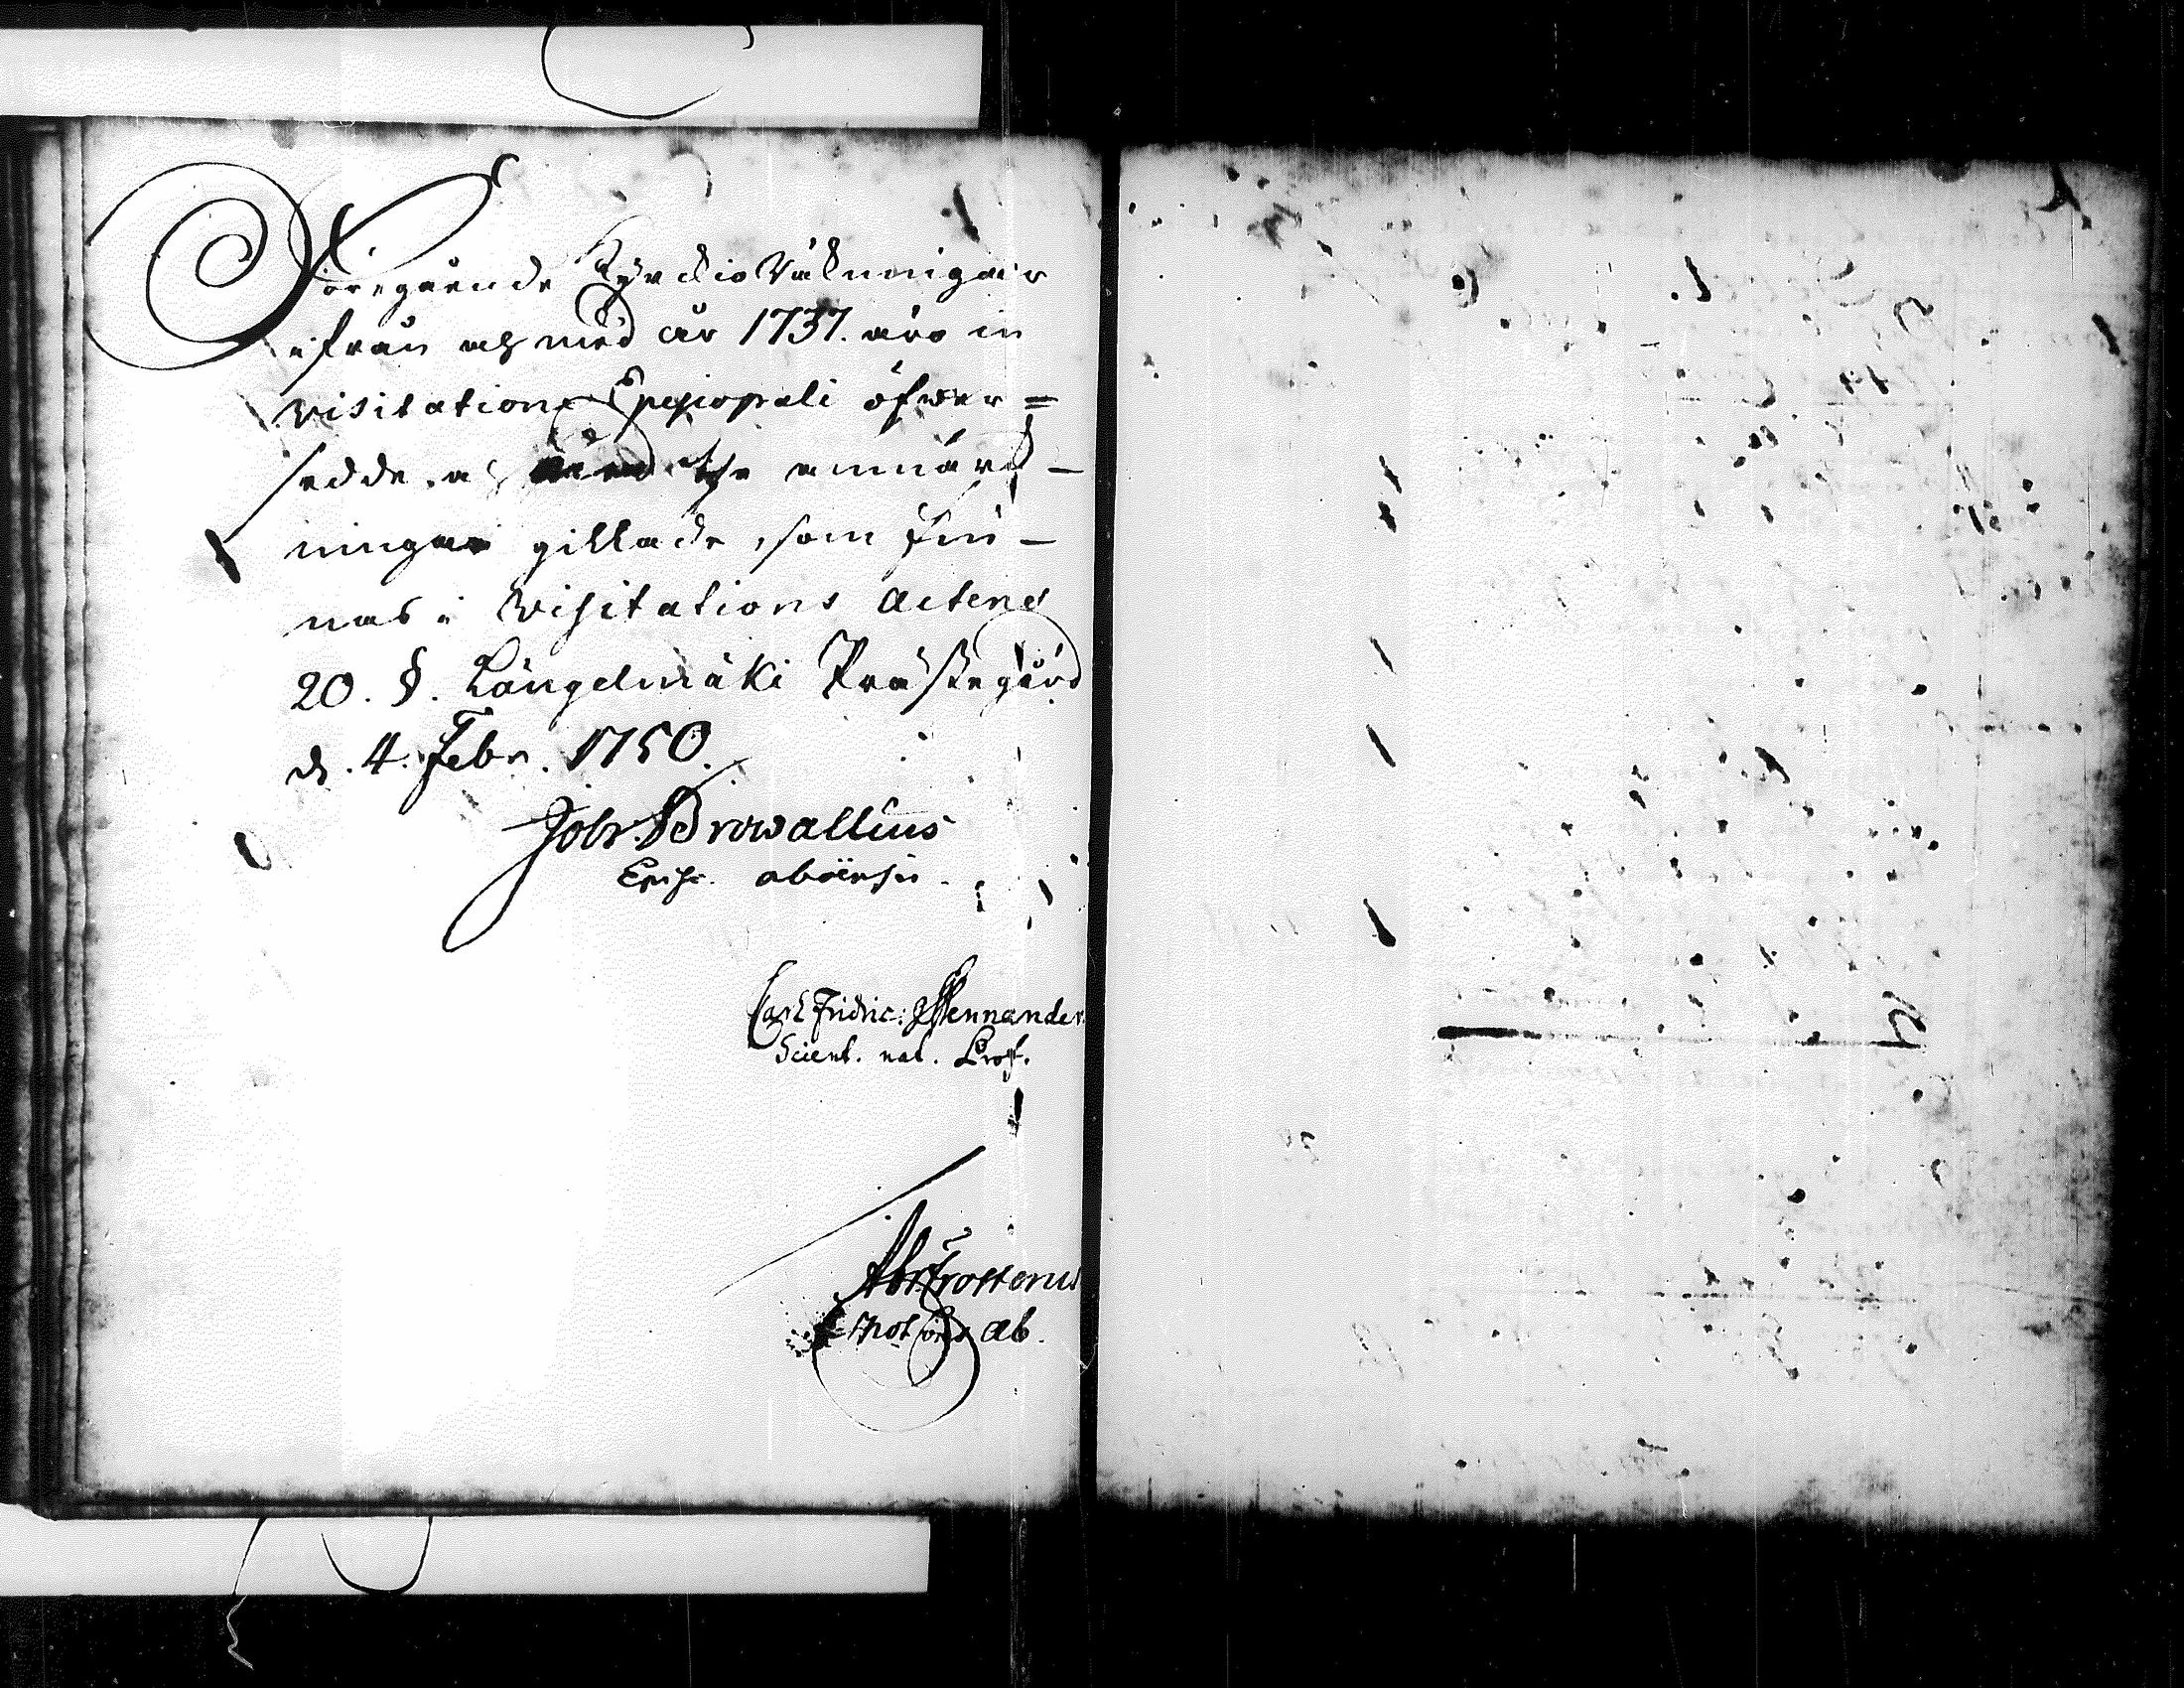 Föregående Kyrckio Räkningar
ifrån och med år 1737. äro in
visitatione Episcopali öfwer=
sedde, och med the anmärck-
ningar gillade, som fin-
nas i Visitations Actens
20. §. Längelmäki Prästegård
d. 4. Febr. 1750.
Joh. Browallius
Episc. aboënsis.
Carl Fridric: Mennander
Scient. nat. Prof.
Abr: Frosterus
Not: Ab.